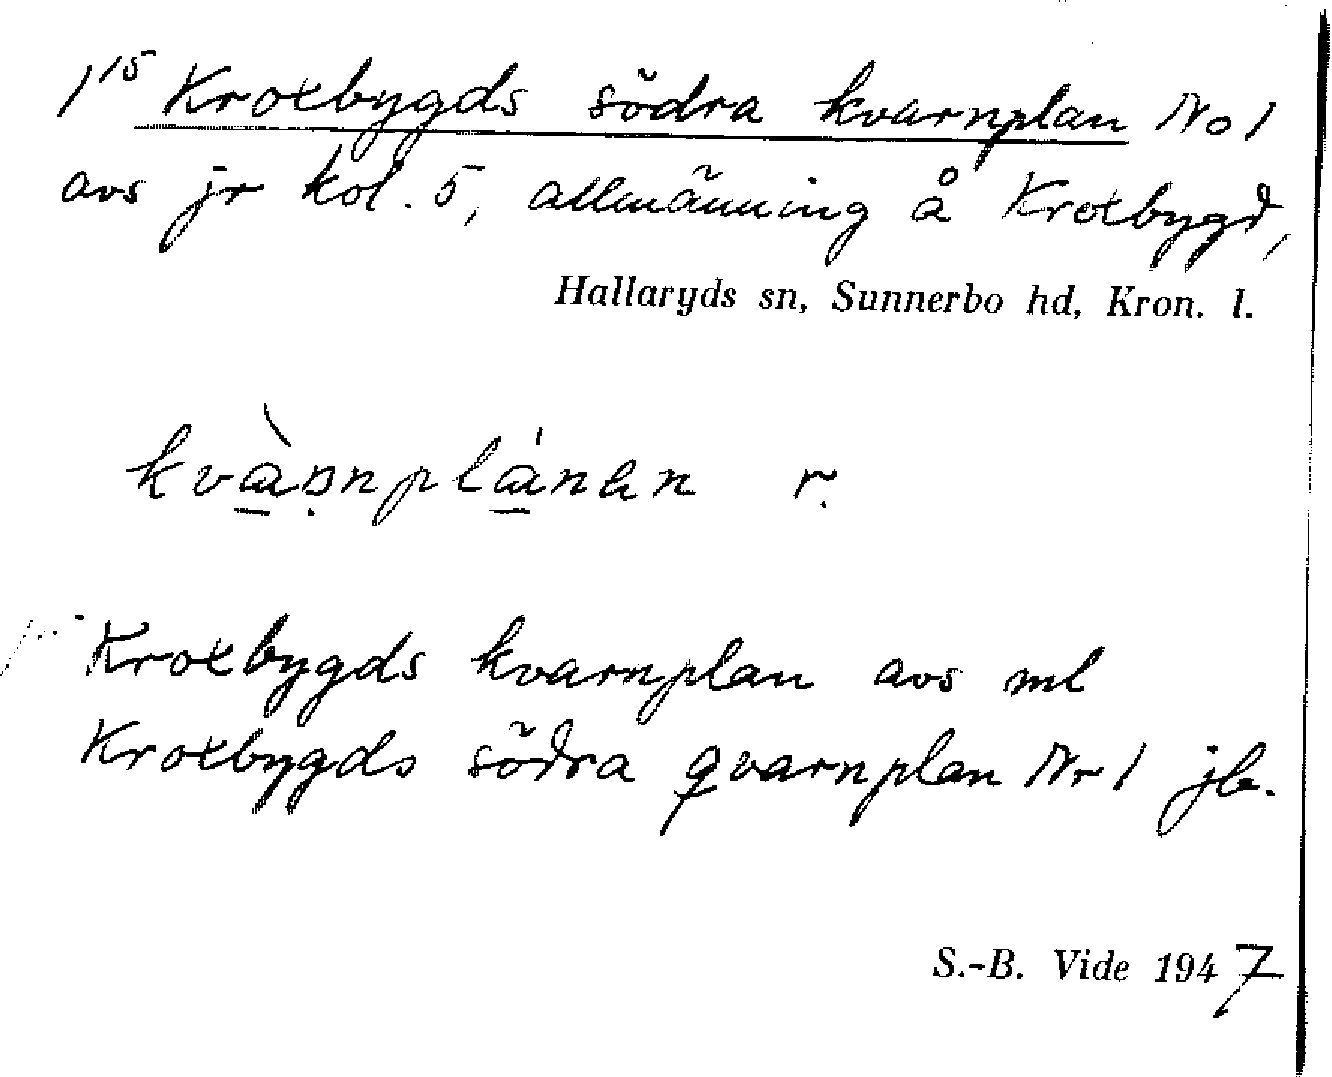 1¹⁵ Kroxbygds södra kvarnplan No 1
avs jr kol. 5, allmänning å Kroxbygd,
Hallaryds sn, Sunnerbo hd, Kron. l.
kvànnplánen r.
Kroxbygds kvarnplan avs ml
Kroxbygds södra qvarnplan Nr 1 jb.
S.-B. Vide 1947